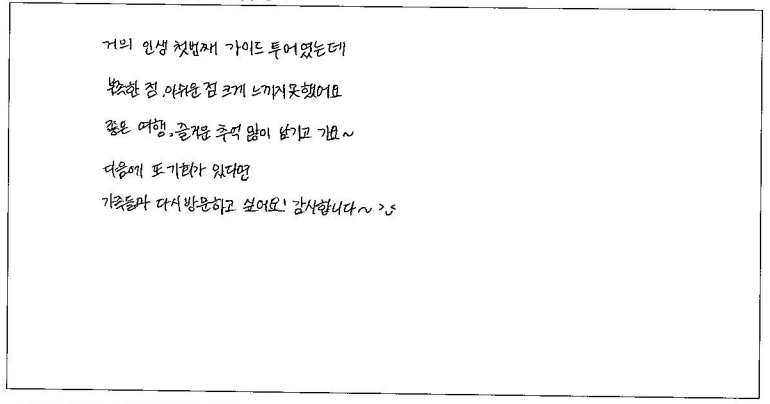 거의 인생 첫번째 가이드 투어였는데
부족한 점, 아쉬운 점 크게 느끼지 못했어요
좋은 여행, 즐거운 추억 많이 남기고 가요~
다음에 또 기회가 있다면
가족들과 다시 방문하고 싶어요! 감사합니다~ >ں<